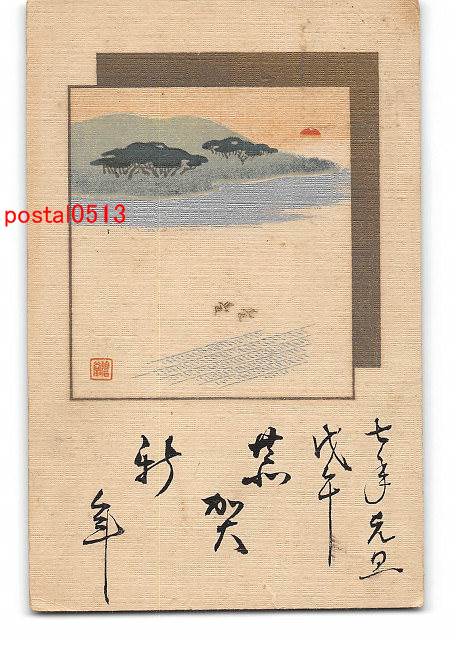 七年元旦
戊午
恭賀
新年
postal0513